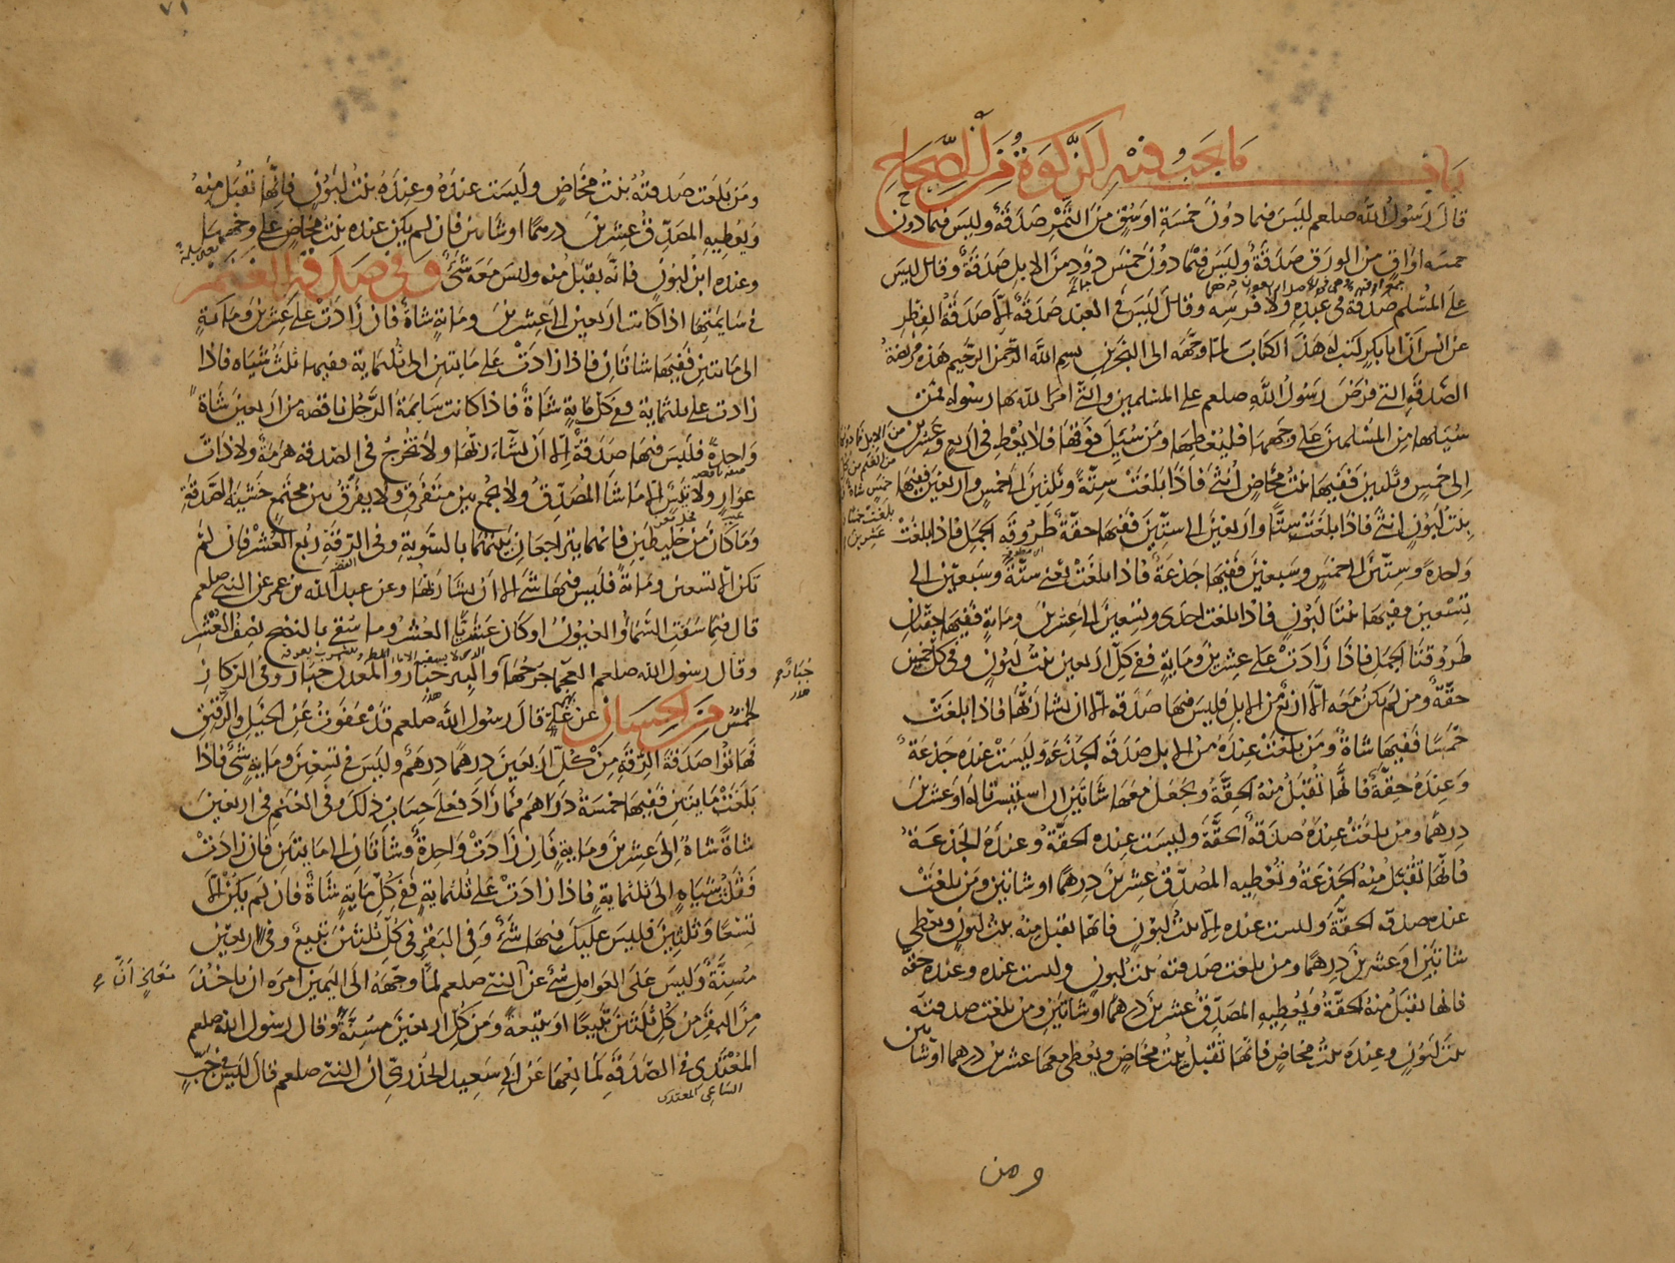 باب ما يجب فيه الزكوة من الصحاح
قال رسول الله صلعم ليس فيما دون خمسة اوسق من التمر صدقة وليس فيما دون
خمسة اواق من الورق صدقة وليس فيما دون خمس ذود من الابل صدقة وقال ليس
على المسلم صدقة في عبده ولا فرسه وقال ليس في العبد صدقة الا صدقة الفطر
عن انس ان ابا بكر كتب له هذا الكتاب لما وجهه الى البحرين بسم الله الرحمن الرحيم هذه فريضة
الصدقة التي فرض رسول الله صلعم على المسلمين والتي امر الله بها رسوله فمن
سئلها من المسلمين على وجهها فليعطها ومن سئل فوقها فلا يعط في اربع وعشرين من الابل فما دونها
من الغنم من كل
خمس شاة
بلغت خمسا و
عشرين
الى خمس وثلثين ففيها بنت مخاض انثى فاذا بلغت ستة وثلثين الى خمس واربعين ففيها
بنت لبون انثى فاذا بلغت ستا واربعين الى ستين ففيها حقة طروقة الجمل فاذا بلغت
واحدة وستين الى خمس وسبعين ففيها جذعة فاذا بلغت يعني ستة وسبعين الى
تسعين ففيها بنتا لبون فاذا بلغت احدى وتسعين الى عشرين ومائة ففيها حقتان
طروقتا الجمل فاذا زادت على عشرين ومائة ففي كل اربعين بنت لبون وفي كل خمسين
حقة ومن لم يكن معه الا اربع من الابل فليس فيها صدقة الا ان يشاء ربها فاذا بلغت
خمسا ففيها شاة ومن بلغت عنده من الابل صدقة الجذعة وليست عنده جذعة
وعنده حقة فانها تقبل منه الحقة ويجعل معها شاتين ان استيسرتا له او عشرين
درهما ومن بلغت عنده صدقة الحقة وليست عنده الحقة وعنده الجذعة
فانها تقبل منه الجذعة وتعطيه المصدق عشرين درهما او شاتين ومن بلغت
عنده صدقة الحقة وليست عنده الا بنت لبون فانها تقبل منه بنت لبون ويعطي
شاتين او عشرين درهما ومن بلغت صدقته بنت لبون وليست عنده وعنده حقة
فانها تقبل منه الحقة ويعطيه المصدق عشرين درهما او شاتين ومن بلغت صدقته
بنت لبون وعنده بنت مخاض فانها تقبل بنت مخاض ويعطى معها عشرين درهما او شاتين
ومن
٧١
ومن بلغت صدقته بنت مخاض وليست عنده وعنده بنت لبون فانها تقبل منه
ويعطيه المصدق عشرين درهما او شاتين فان لم يكن عنده بنت مخاض على وجهها
وعنده ابن لبون فانه يقبل منه وليس معه شيء وفي صدقة الغنم
في سايمتها اذا كانت اربعين الى عشرين ومائة شاة فان زادت على عشرين ومائة
الى مايتين ففيها شاتان فاذا زادت على مايتين الى ثلثماية ففيها ثلث شياه فاذا
زادت على ثلثماية ففي كل ماية شاة فاذا كانت سايمة الرجل ناقصة من اربعين شاة
واحدة فليس فيها صدقة الا ان يشاء ربها ولا تخرج في الصدقة هرمة ولا ذات
عوار ولا تيس الا ما شا المصدق ولا يجمع بين متفرق ولا يفرق بين مجتمع خشية الصدقة
وما كان من خليطين فانهما يتراجعان بينهما بالسوية وفي الرقة ربع العشر فان لم
تكن الا تسعين ومائة فليس فيها شيء الا ان يشا ربها وعن عبد الله بن عمر عن النبي صلعم
قال فيما سقت السماء والعيون او كان عثريا العشر وما سقي بالنضح نصف العشر
وقال رسول الله صلعم العجما جرحها جبار والبير جبار والمعدن جبار وفي الركاز
جبار
هدر
الخمس من الحسان عن علي قال رسول الله صلعم قد عفوت عن الخيل والرقيق
فهاتوا صدقة الرقة من كل اربعين درهما درهم وليس في تسعين ومائة شيء فاذا
بلغت مايتين ففيها خمسة دراهم فما زاد فعلى حساب ذلك وفي الغنم في اربعين
شاة شاة الى عشرين وماية فان زادت واحدة فشاتان الى مايتين فان زادت
فثلث شياه الى ثلثماية فاذا زادت على ثلثماية ففي كل ماية شاة فان لم يكن الا
تسعا وثلثين فليس عليك فيها شيء وفي البقر في كل ثلثين تبيع وفي اربعين
مسنة وليس على العوامل شيء عن النبي صلعم لما وجهه الى اليمن امره ان ياخذ
من البقر من كل ثلثين تبيعا او تبيعة ومن كل اربعين مسنة وقال رسول الله صلعم
المعتدي في الصدقة كمانعها عن ابي سعيد الخدري ان النبي صلعم قال ليس في حب
الساعي المعتدي